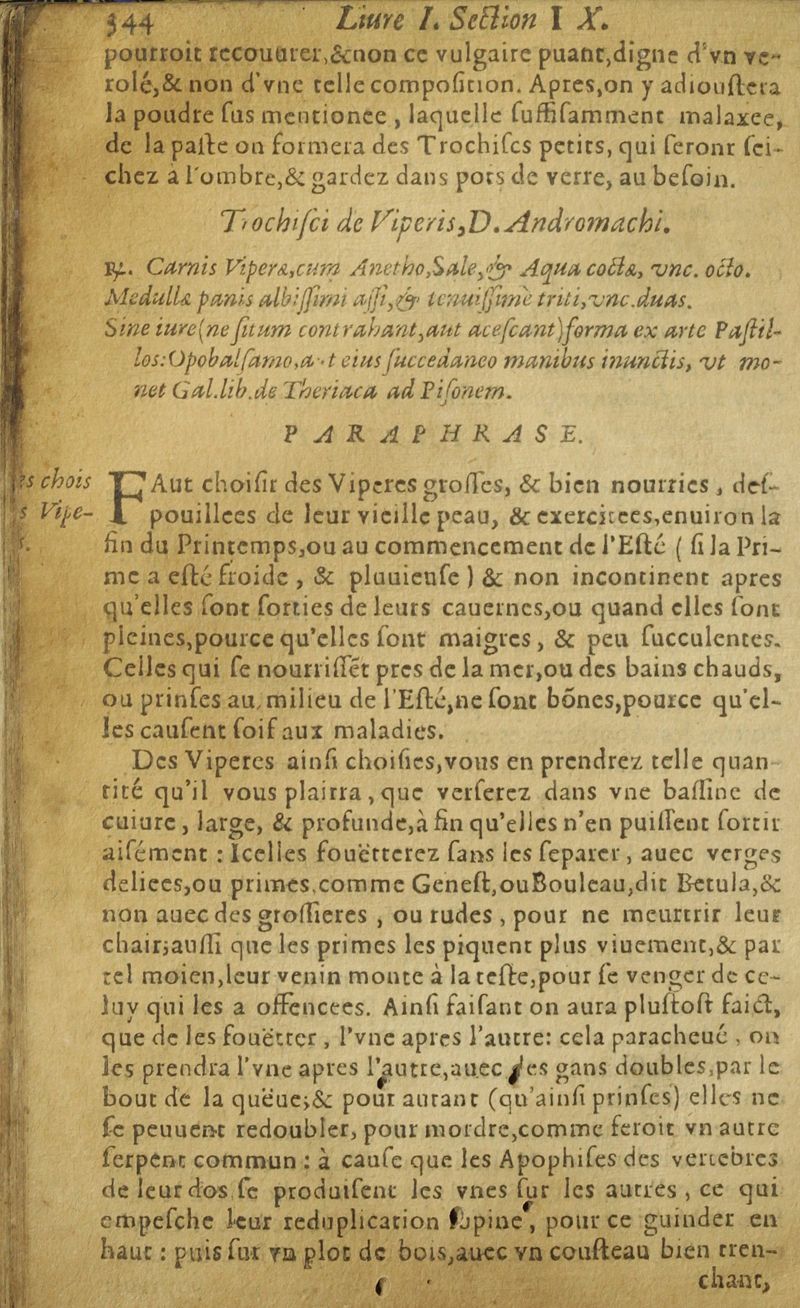 344 Liure I. Section IX.
pourroit recouurer,&non ce vulgaire puant,digne d'vn ve-
rolé,& non d'vne telle composition. Apres,on y adioustera
la poudre sus mentionee, laquelle suffisamment malaxee,
de la paste on formera des Trochisces petits, qui seront sei-
chez à l'ombre,& gardez dans pots de verre, au besoin.
Trochisci de Viperis,D.Andromachi.
℞. Carnis Viperæ,cum Anetho,Sale,& Aqua coctæ, vnc. octo.
Medullæ panis albissimi assi,& tenuissimè triti,vnc.duas.
Sine iure(ne situm contrahant,aut acescant)forma ex arte Pastil-
los:Opobalsamo,aut eius succedaneo manibus inunctis, vt mo-
net Gal.lib.de Theriaca ad Pisonem.
PARAPHRASE.
FAut choisir des Viperes grosses, & bien nourries, des-
pouillees de leur vieille peau, & exercitees,enuiron la
fin du Printemps,ou au commencement de l'Esté (si la Pri-
me a esté froide, & pluuieuse) & non incontinent apres
qu'elles sont sorties de leurs cauernes,ou quand elles sont
pleines,pource qu'elles sont maigres, & peu succulentes.
Celles qui se nourrissēt pres de la mer,ou des bains chauds,
ou prinses au milieu de l'Esté,ne sont bōnes,pource qu'el-
les causent soif aux maladies.
Des Viperes ainsi choisies,vous en prendrez telle quan-
tité qu'il vous plairra,que verserez dans vne bassine de
cuiure, large, & profunde,à fin qu'elles n'en puissent sortir
aisément : Icelles fouëtterez sans les separer, auec verges
deliees,ou primes,comme Genest,ouBouleau,dit Betula,&
non auec des grossieres, ou rudes, pour ne meurtrir leur
chair;aussi que les primes les piquent plus viuement,& par
tel moien,leur venin monte à la teste,pour se venger de ce-
luy qui les a offencees. Ainsi faisant on aura plustost faict,
que de les fouëtter, l'vne apres l'autre: cela paracheué, on
les prendra l'vne apres l'autre,auec des gans doubles,par le
bout de la quëue;& pour autant (qu'ainsi prinses) elles ne
se peuuent redoubler, pour mordre,comme feroit vn autre
serpent commun : à cause que les Apophises des vertebres
de leur dos se produisent les vnes sur les autres, ce qui
empesche leur reduplication supine, pour ce guinder en
haut : puis sur vn plot de bois,auec vn cousteau bien tren-
chant,
s chois
s Vipe-